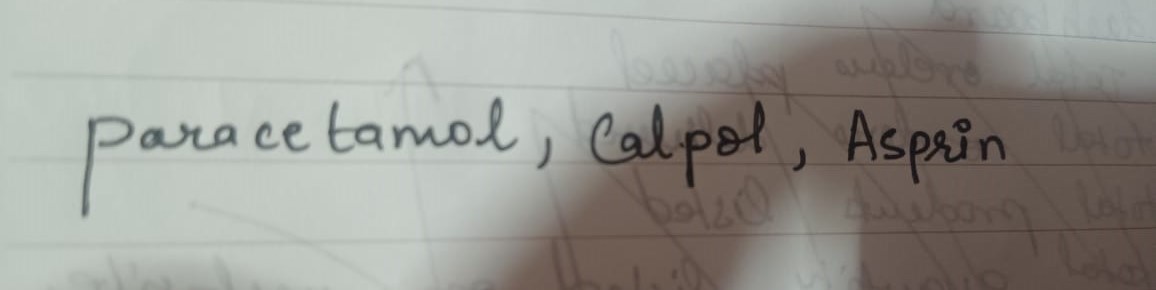 paracetamol, Calpol, Asprin